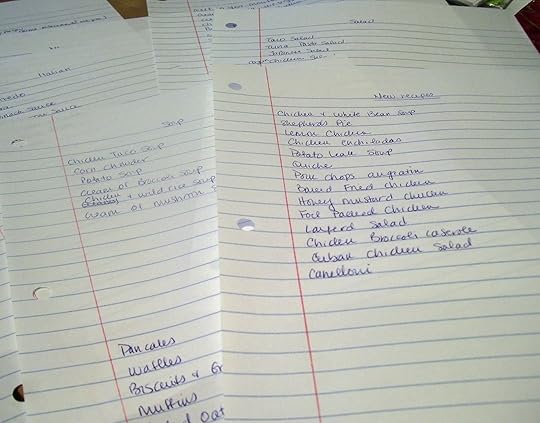 Salad
Taco Salad
Tuna Pasta Salad
Japanese Salad
Chicken Sal
Italian
Sauce
Soup
Chicken Taco Soup
Corn Chowder
Potato Soup
Cream of Broccoli Soup
Chicken + wild rice Soup
Cream of Mushroom S
Pancakes
Waffles
Biscuits + Gr
Muffins
Oat
New recipes
Chicken + White Bean Soup
Shepherds Pie
Lemon Chicken
Chicken enchiladas
Potato Leek Soup
Quiche
Pork chops augratin
Baked Fried Chicken
Honey Mustard Chicken
Foil Packed Chicken
Layerd Salad
Chicken Broccoli Caserole
Cuban Chicken Salad
Canelloni